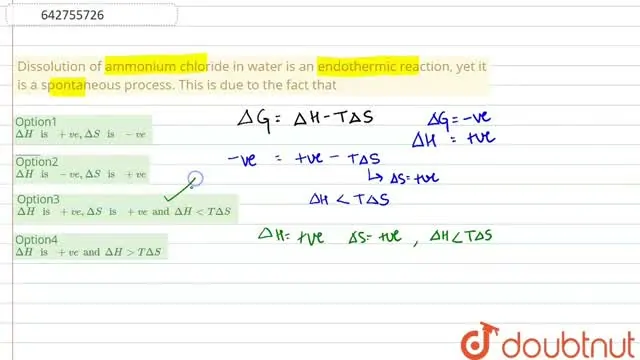 642755726
Dissolution of ammonium chloride in water is an endothermic reaction, yet it
is a spontaneous process. This is due to the fact that
Option1
ΔH is +ve, ΔS is −ve
Option2
ΔH is −ve, ΔS is +ve
Option3
ΔH is +ve, ΔS is +ve and ΔH < TΔS
Option4
ΔH is +ve and ΔH > TΔS
ΔG = ΔH − TΔS
ΔG = −ve
ΔH = +ve
−ve = +ve − TΔS
↳ ΔS = +ve
ΔH < TΔS
ΔH = +ve ΔS = +ve , ΔH < TΔS
doubtnut